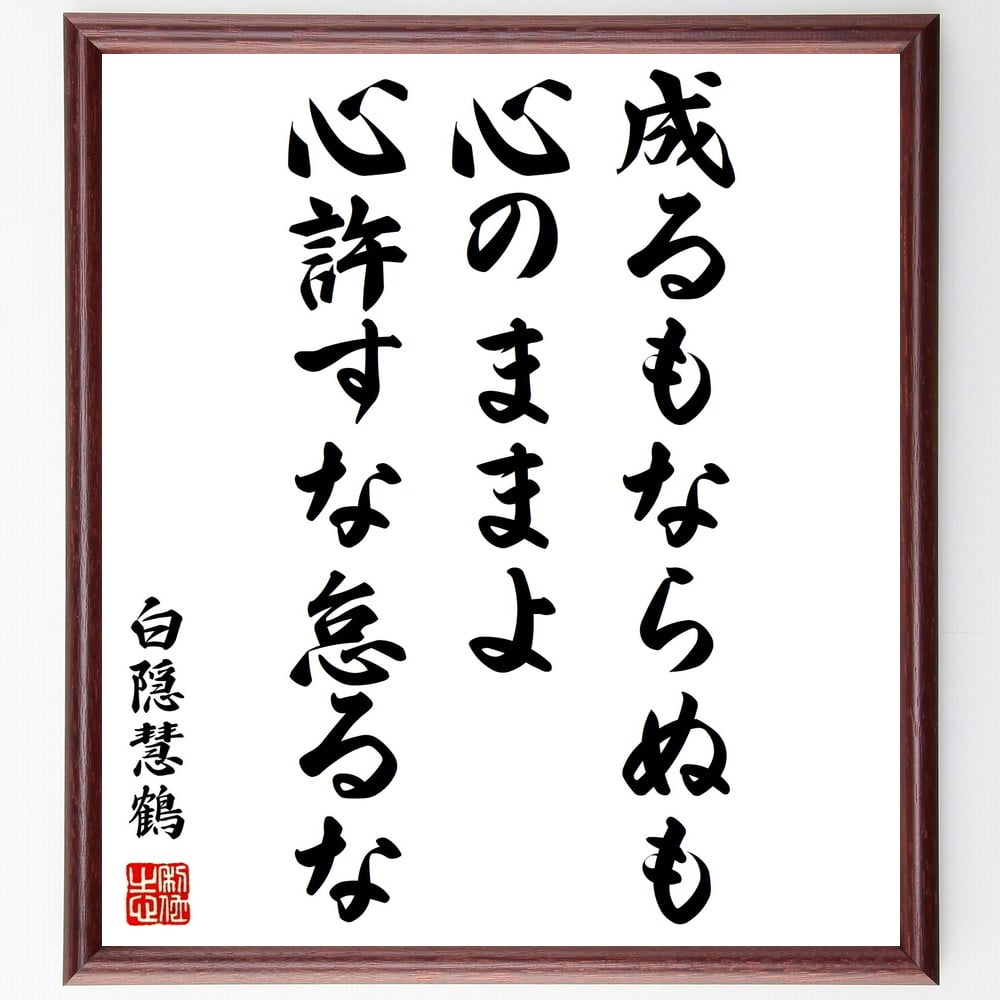 成るもならぬも
心のままよ
心許すな怠るな
白隠慧鶴